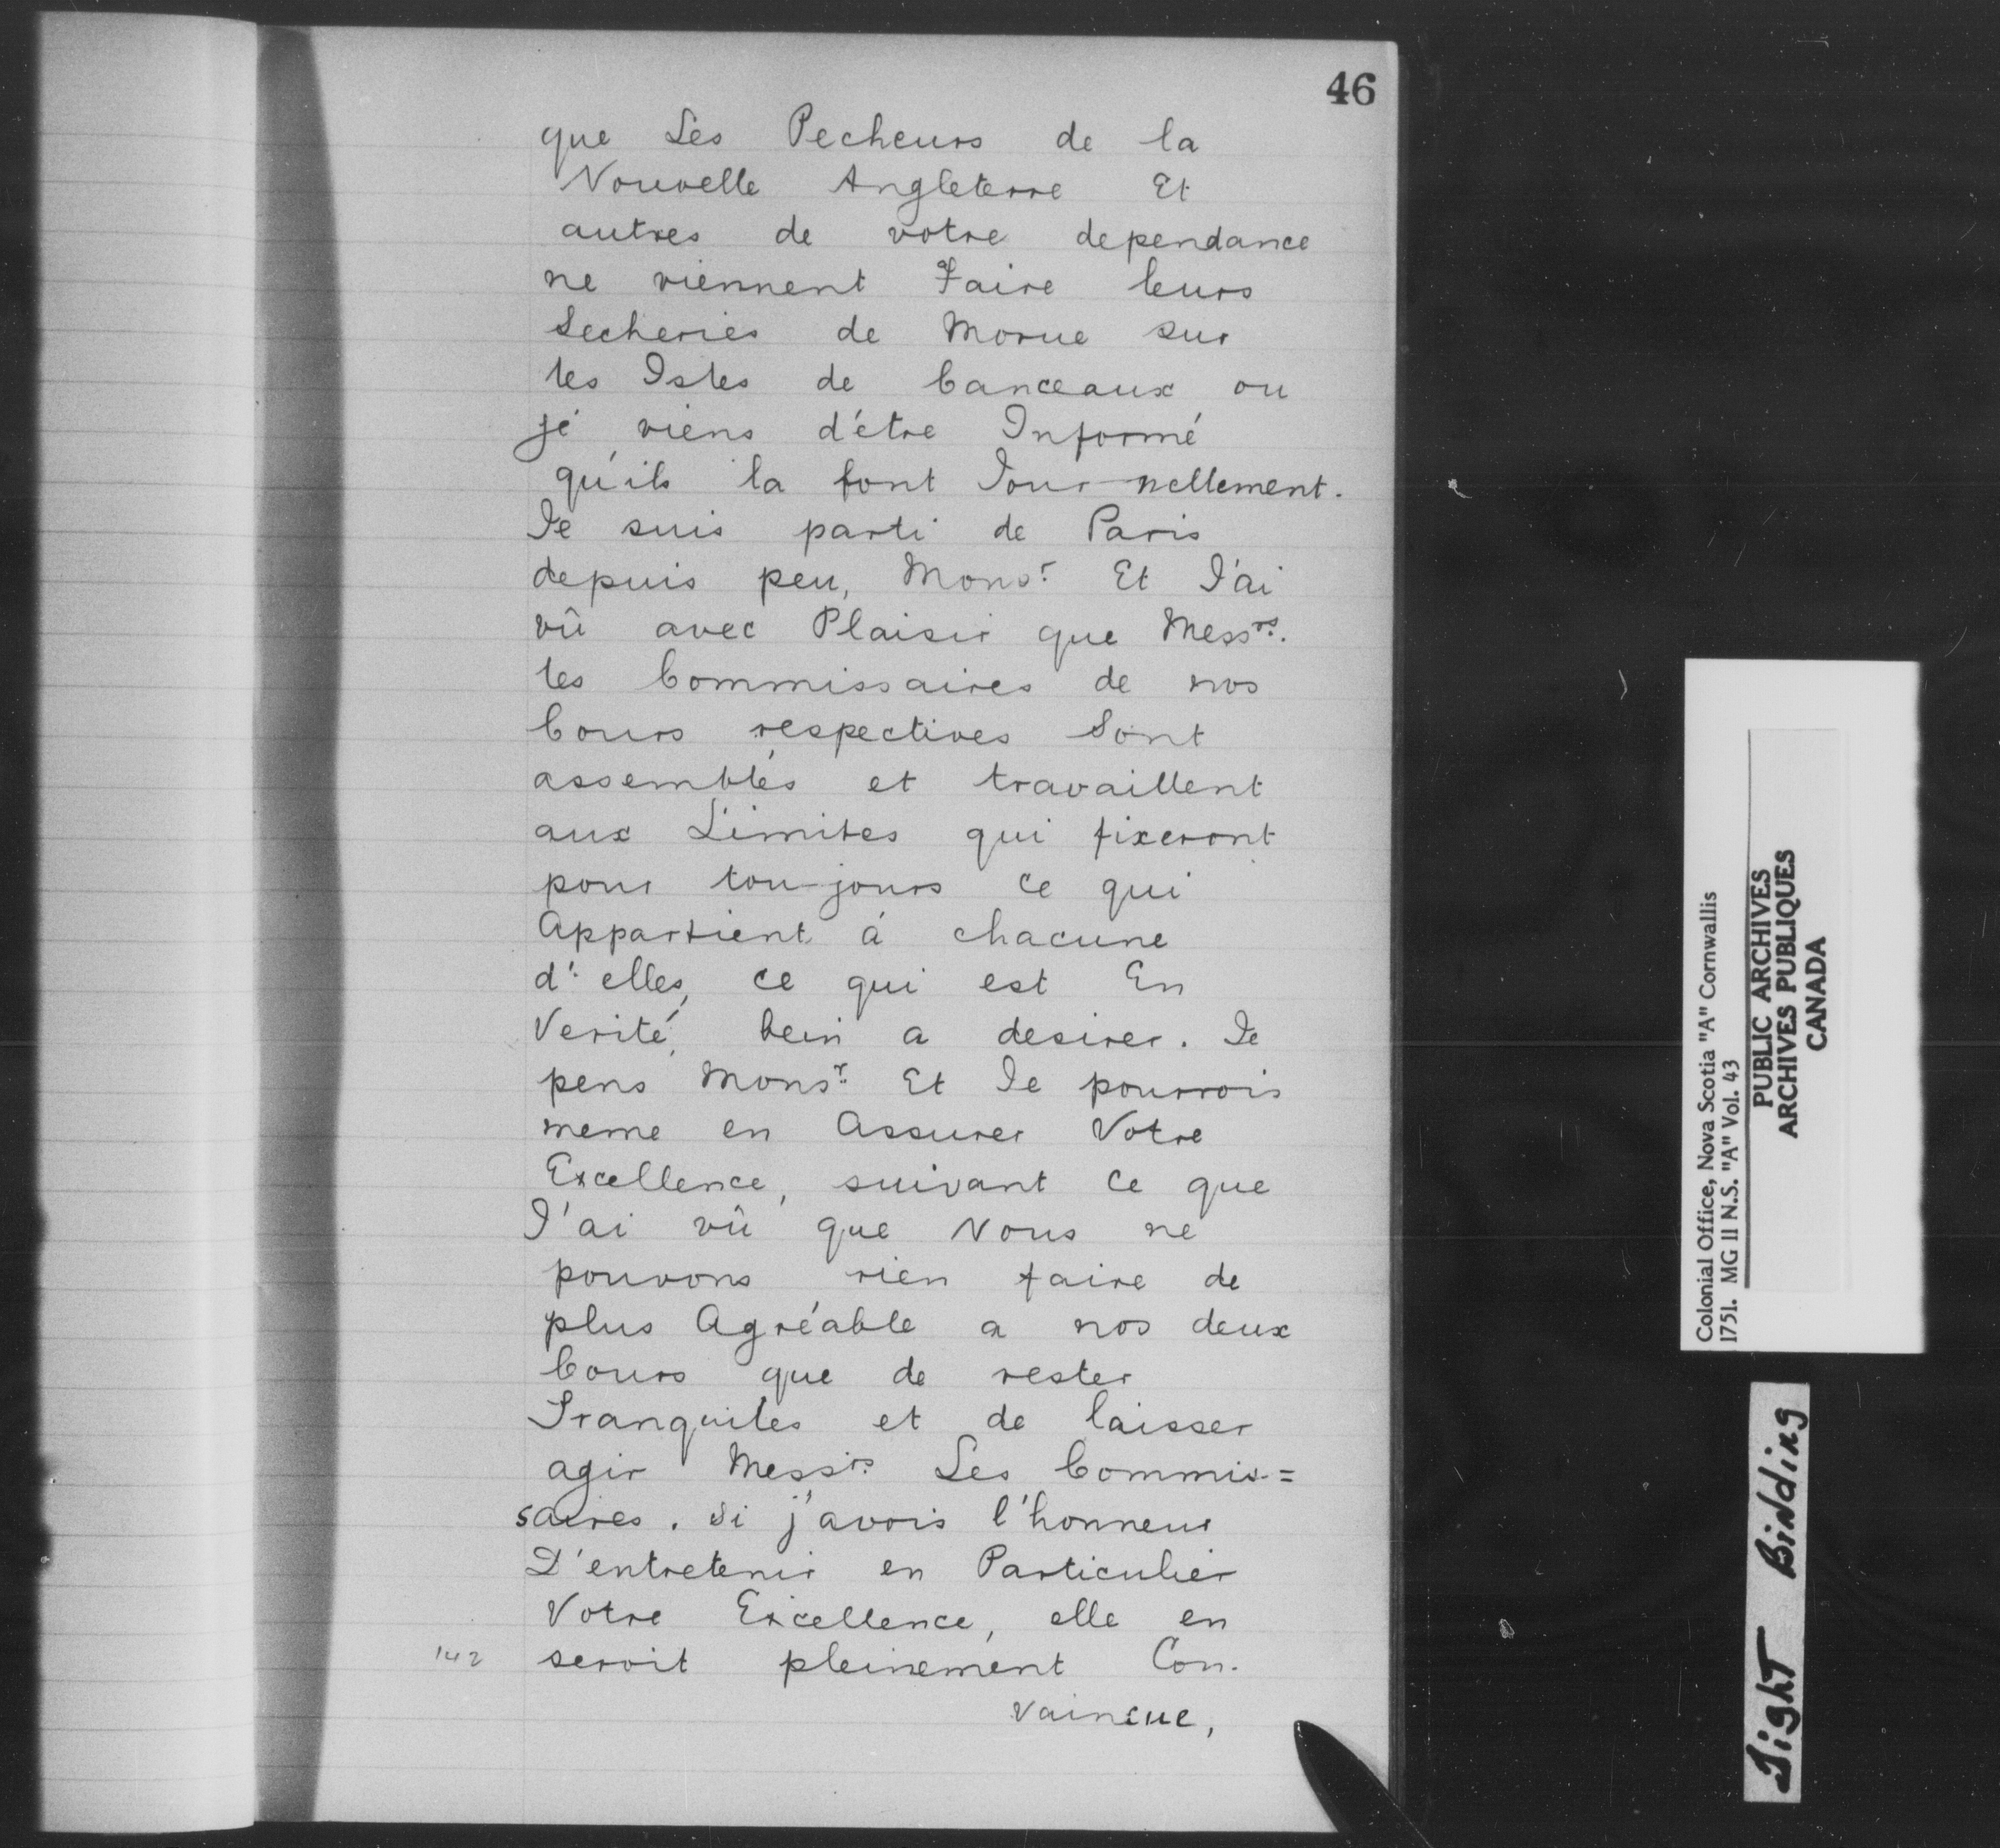 46
que Les Pecheurs de la
Nouvelle Angleterre Et
autres de votre dependance
ne viennent Faire leurs
Secheries de Morue sur
les Isles de Canceaux ou
je viens d'étre Informé
qu'ils la font Jour-nellement.
Je suis parti de Paris
depuis peu, Monsr. Et J'ai
vû avec Plaisir que Messrs.
les Commissaires de nos
Cours respectives Sont
assemblés et travaillent
aux Limites qui fixeront
pour tou-jours ce qui
Appartient á chacune
d'elles, ce qui est En
Verité, bein a desirer. Je
pens Monsr. Et Je pourrois
meme en Assurer Votre
Excellence, suivant ce que
J'ai vû que Nous ne
pouvons rien faire de
plus Agréable a nos deux
Cours que de rester
Tranquiles et de laisser
agir Messrs. Les Commis=
saires. Si j'avois l'honneur
D'entretenir en Particulier
Votre Excellence, elle en
142 seroit pleinement Con-
vaincue,
Colonial Office, Nova Scotia "A" Cornwallis
1751. MG 11 N.S. "A" Vol. 43
PUBLIC ARCHIVES
ARCHIVES PUBLIQUES
CANADA
Tight Binding